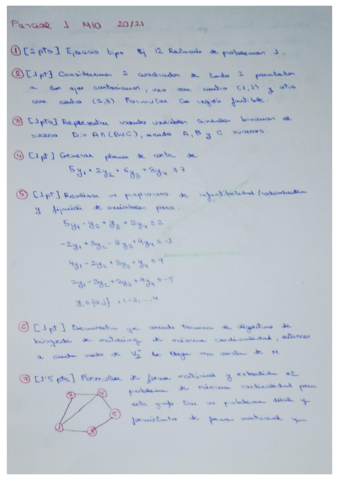 Parcial 1 MIO 20/21
① [2pts] Ejercicio tipo Ej 12 Relación de problemas 1.
② [1pt] Consideremos 2 cuadrados de lado 2 paralelos
a los ejes coordenados, uno con centro (1,2) y otro
con centro (2,3). Formular la región factible.
③ [1pto] Representar usando variables binarias el
suceso D = A∩(B∪C), siendo A, B y C sucesos.
④ [1pt] Generar planos de corte de
5y₁ + 2y₂ + 6y₃ + 3y₄ ≥ 7
⑤ [1pt] Realizar un preproceso de infactibilidad/redundancia
y fijación de variables para:
5y₁ - y₂ + y₃ + 2y₄ ≤ 2
-2y₁ + 3y₂ - 2y₃ + 4y₄ ≤ -1
4y₁ - 2y₂ + 3y₃ + y₄ ≤ 4
2y₁ - 3y₂ + 2y₃ + 4y₄ ≤ -5
⑥ [1pt] Demuestra que cuando termina el algoritmo de
búsqueda de matching de máxima cardinalidad, entonces
a cada nodo de
⑦ [1'5 pts] Formular de forma matricial y extendida el
problema de máxima cardinalidad para
este grafo. Dar su problema dual y
de forma matricial y
1